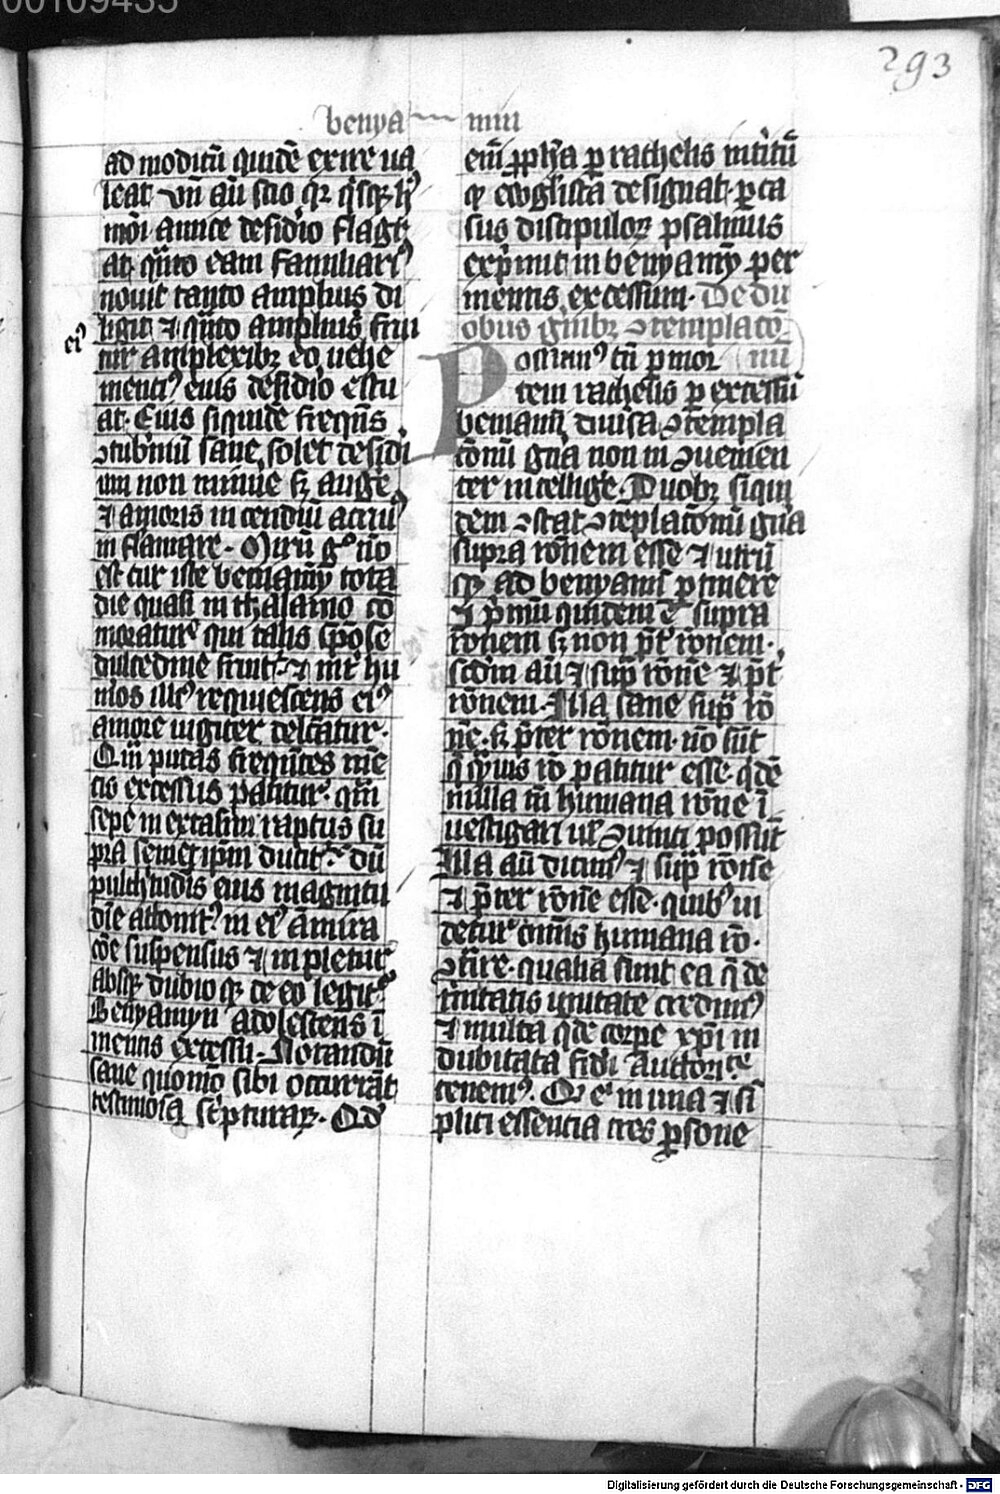 00109435
293
benya mın
ad moditū quidē exire ua
leat. Vn̄ aū scio qꝛ q̇sqꝫ hꝰ
mōi aūice desidio flagͣ
at. qͣnto eam familiariꝰ
nouit tanto amplius di
ligit ⁊ qͣnto amplius fruı
eiꝰ
tur amplexibꝫ eo uehe
mentiꝰ eius desidio estu
at. Eius siquidē freqn̄s
ꝯtub'niū sane solet desidı
um non minue sꝫ auge
⁊ amoris incendiū acriꝰ
in flamare. Mirū gͦ nō
est cur iste beniamȳ tota
die quasi in thalamo cō
moratur qui talis sponse
dulcedine fruit̄ ⁊ int̄ hu
mos illiꝰ requiescens eiꝰ
amore iugiter delc̄atur.
Qm̄ putas freqn̄tes mē
tis excessus patitur. qm̄
sepe in extasim raptus su
pra semetip̄m ducit̄. dū
pulch'tudis eius magnitu
die attonitꝰ in eiꝰ amira
cōe suspensus ⁊ impletur
absqꝫ dubio qꝫ de eo legit̄.
Benyamyn adolescens ī
mentis excessu. Notandū
sane quomō sibi occurrāt
testimoīa sc̄pturaꝝ. Qd̄
eīm ꝓph̄a ꝑ rachelis int'itū
qꝫ ewglista designat. ꝑ ca
sus discipuloꝝ psalmus
exp̄mit in benyamȳ per
mentis excessum. De du
obus gn̄ibꝫ ꝯtemplacō
nū
Possumꝰ tn̄ ꝑ mor
tem rachelis ꝑ excessū
beniamī diuīsa ꝯtempla
cōnū gn̄a non inꝯuenien
ter intellige. Duobꝫ siqui
dem ꝯstat ꝯtēplacōnū gn̄a
supra rōnem esse ⁊ utrū
qꝫ ad benyamī ꝑtinere
Et p̄mū quidem ē supra
rōnem sꝫ non p̄t rōnem.
scdm aū ⁊ sup̄ rōne ⁊ p̄t
rōnem. Illa sane sup̄ rō
nē. sꝫ p̄ter rōnem nō sūt
q̄ q̄uis rō patitur esse. qdē
nulla tn̄ humana rōne ī
uestigari ul' ꝯuinci possūt
Illa aū dicimꝰ ⁊ sup̄ rōne
⁊ p̄ter rōne esse. quibꝰ ui
detur om̄is humana rō.
ꝯt'ire. qualia sunt ea q̄ de
t'nitatis unitate credimꝰ
⁊ multa q̄ de corpe xp̄i in
dubitata fidı auctori.te
tenemꝰ. Qꝫ eī in una ⁊ sī
plici essentia tres ꝑsone
Digitalisierung gefördert durch die Deutsche Forschungsgemeinschaft - DFG